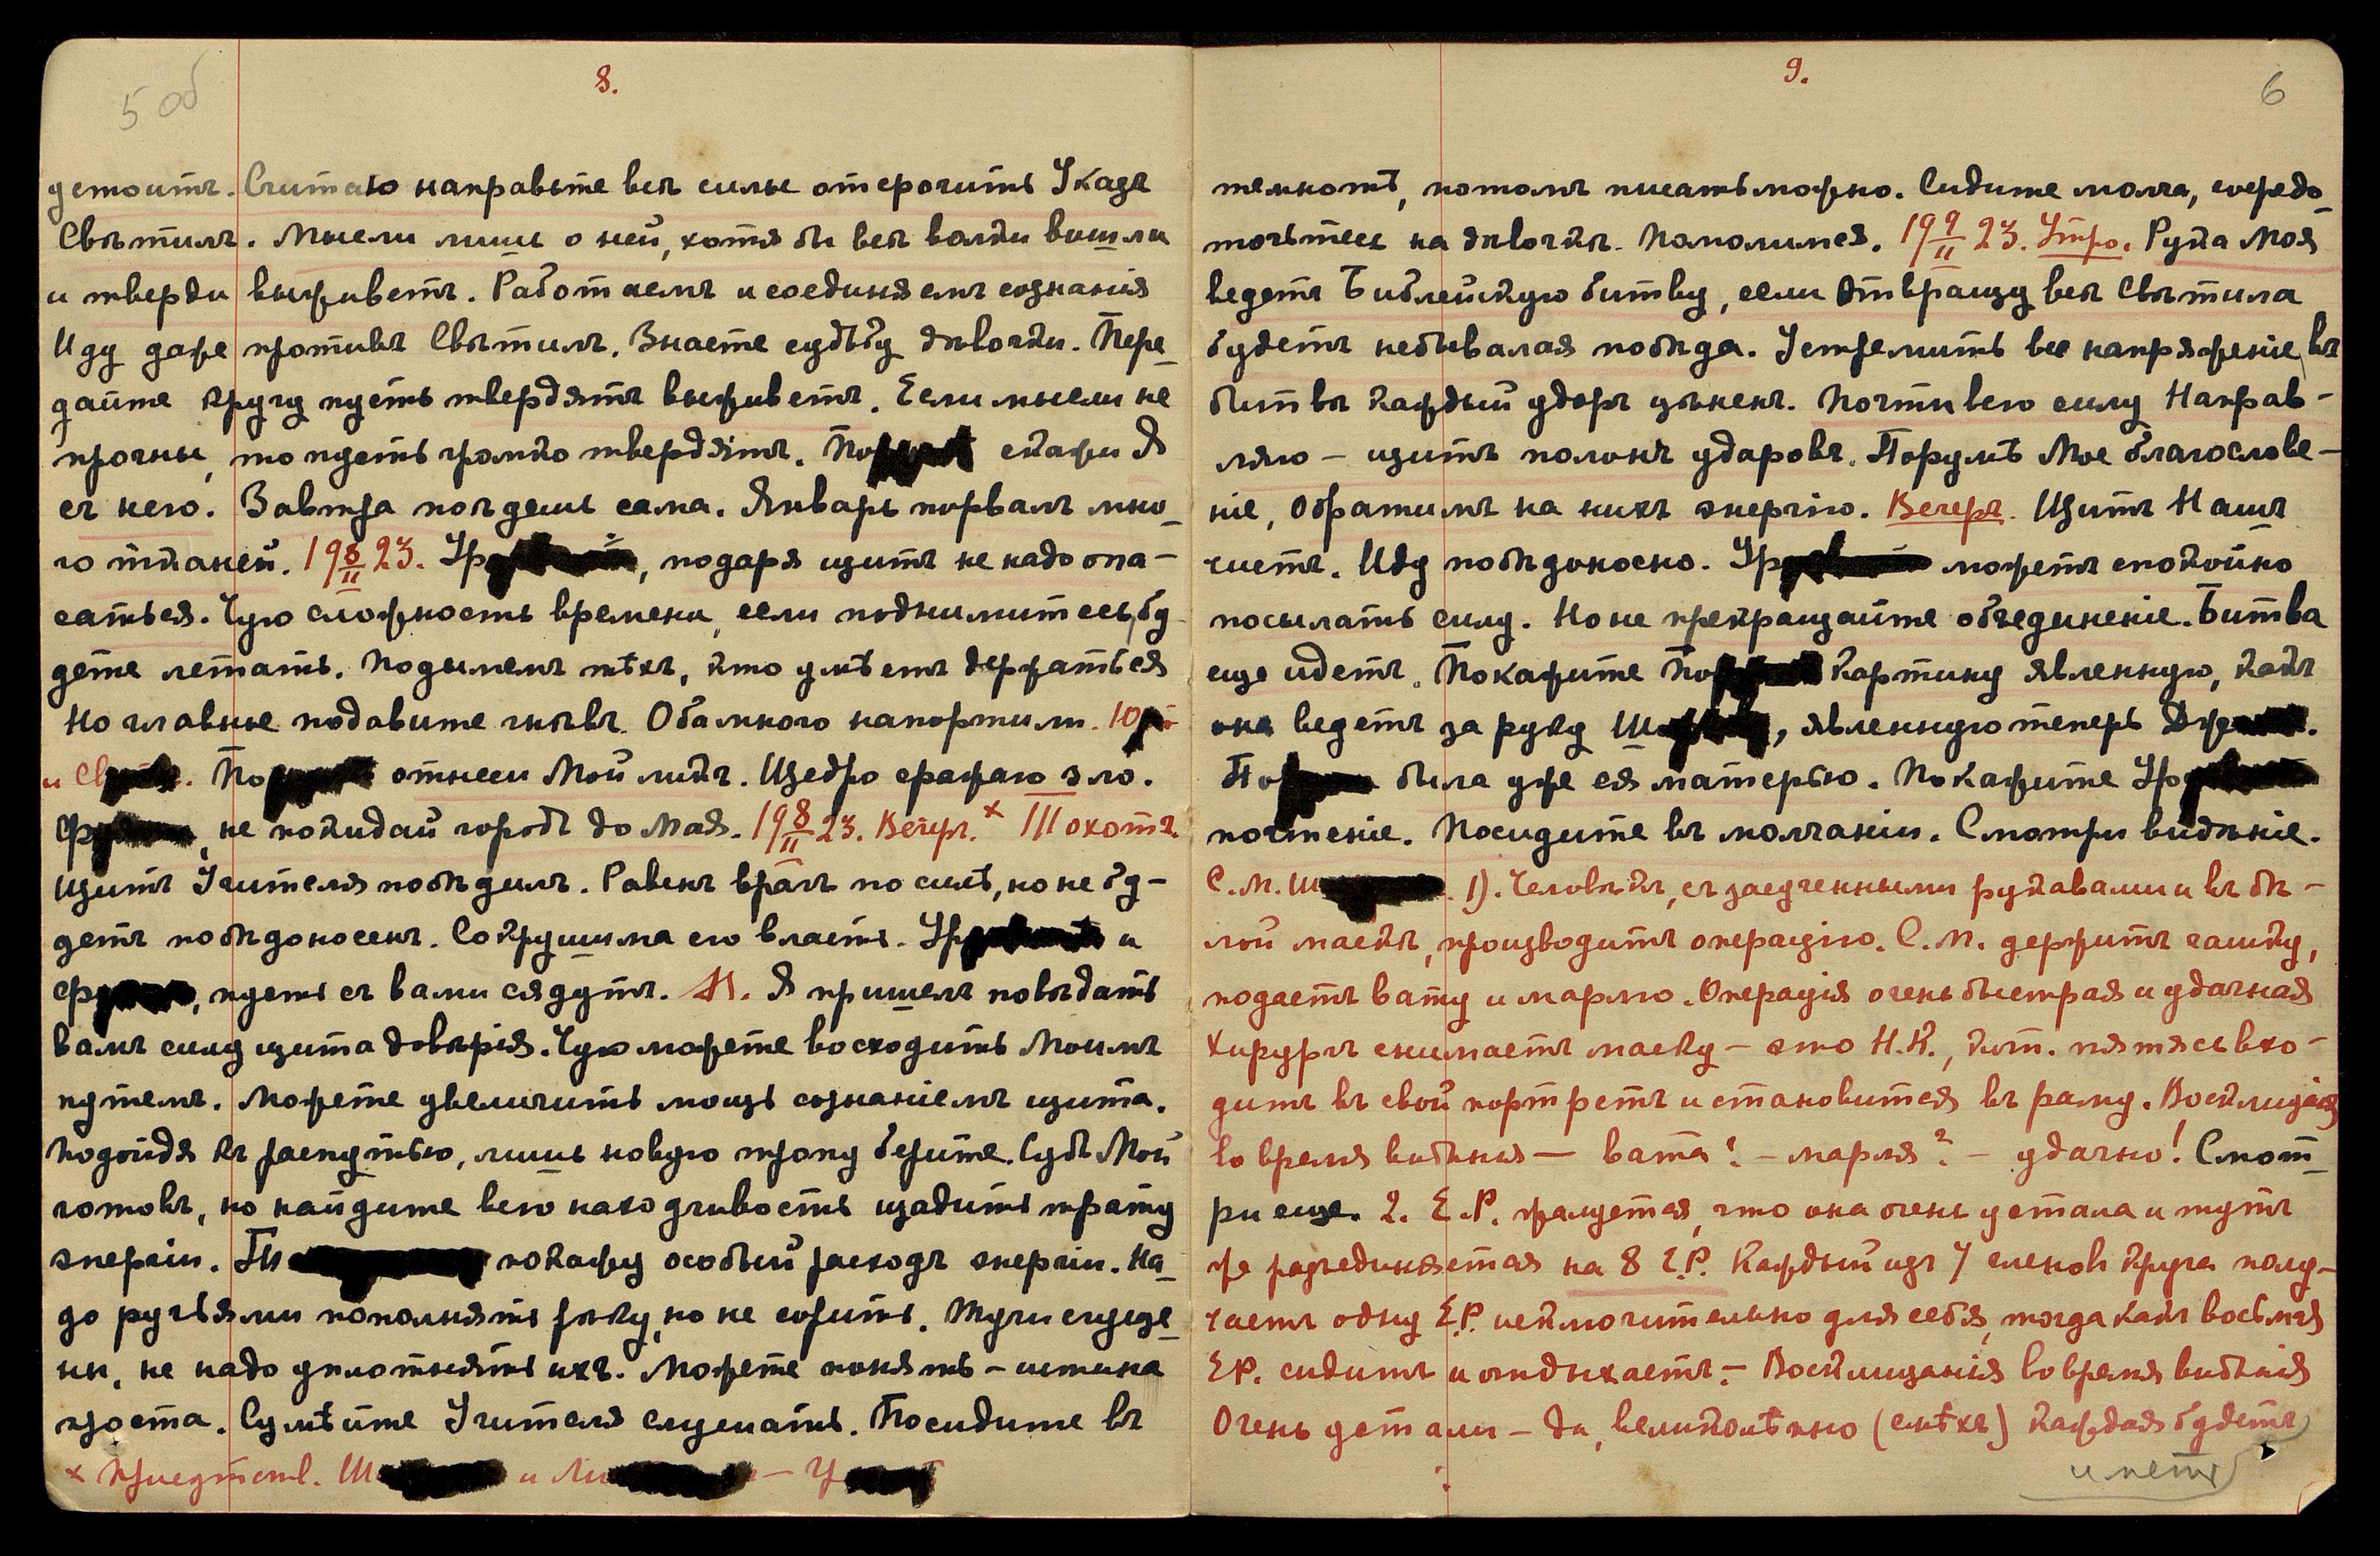 5 об
8.
устоитъ. Считаю направьте всѣ силы отсрочить Указъ
Свѣтилъ. Мысли лишь о ней, хотя бы всѣ волки вышли
и тверди выживетъ. Работаемъ и соединяемъ сознанія
Иду даже противъ Свѣтилъ. Знаете судьбу дѣвочки. Пере-
дайте кругу пусть твердятъ выживетъ. Если мысли не
прочны, то пусть громко твердятъ. По скажи Я
съ него. Завтра поѣдешь сама. Январь порвалъ мно-
го тканей. 19 8/II 23. Ур , подаря щитъ не надо опа-
саться. Чую сложность времени, если поднимитесь, бу-
дете летать. Подымемъ тѣхъ, кто умѣетъ держаться
Но главные подавите гнѣвъ. Оба много напортили. Юр
и Св . По отнеси Мой ликъ. Щедро сражаю зло.
Фр , не покидай городъ до Мая. 19 8/II 23. Вечеръ. × III охотъ.
Щитъ Учителя побѣдилъ. Равенъ врагъ по силѣ, но не бу-
детъ побѣдоносенъ. Сокрушима его власть. Ур и
Фр , пусть съ вами сядутъ. М. Я пришелъ повѣдать
вамъ силу щита довѣрія. Чую можете восходить Моимъ
путемъ. Можете увеличить мощь сознаніемъ щита.
Подойдя къ распутью, лишь новую тропу берите. Судъ Мой
готовъ, но найдите всю находчивость щадить трату
энергіи. покажу особый расходъ энергіи. На-
до ручьями пополнять рѣку, но не сорить. Тучи сгуще-
ны, не надо уплотнять ихъ. Можете понять – истина
проста. Сумѣйте Учителя слушать. Посидите въ
× Присутств. Ш и Ли – У
9.
6
темнотѣ, потомъ писать можно. Сидите молча, сосредо-
точьтесь на дѣвочкѣ. Помолимся. 19 9/II 23. Утро. Рука Моя
ведетъ Библейскую битву, если Отвращу всѣ Свѣтила
будетъ небывалая побѣда. Устремить все напряженіе, въ
битвѣ каждый ударъ цѣненъ. Почти всю силу Направ-
ляю – щитъ полонъ ударовъ. Порумѣ Мое благослове-
ніе, Обратимъ на нихъ энергію. Вечеръ. Щитъ Нашъ
чистъ. Иду побѣдоносно. Ур можетъ спокойно
посылать силу. Но не прекращайте объединеніе. Битва
еще идетъ. Покажите По картину явленную, какъ
она ведетъ за руку Ш , явленную теперь Дж .
По была уже ея матерью. Покажите Ур
почтеніе. Посидите въ молчаніи. Смотри видѣніе.
С.М.Ш . 1). Человѣкъ, съ засученными рукавами и въ бѣ-
лой маскѣ, производитъ операцію. С.М. держитъ чашку,
подаетъ вату и марлю. Операція очень быстрая и удачная
Хирургъ снимаетъ маску – это Н.К., пятясь вхо-
дитъ въ свой портретъ и становится въ раму. Восклицанія
во время видѣнія – вата? – марля? – удачно! Смот-
ри еще. 2. Е.Р. жалуется, что она очень устала и тутъ
же разъединяется на 8 Е.Р. Каждый изъ 7 членовъ круга полу-
чаетъ одну Е.Р. исключительно для себя, тогда какъ восьмая
Е.Р. сидитъ и отдыхаетъ. – Восклицанія во время видѣнія
Очень устали – да, великолѣпно (смѣхъ) каждая будетъ
имѣть